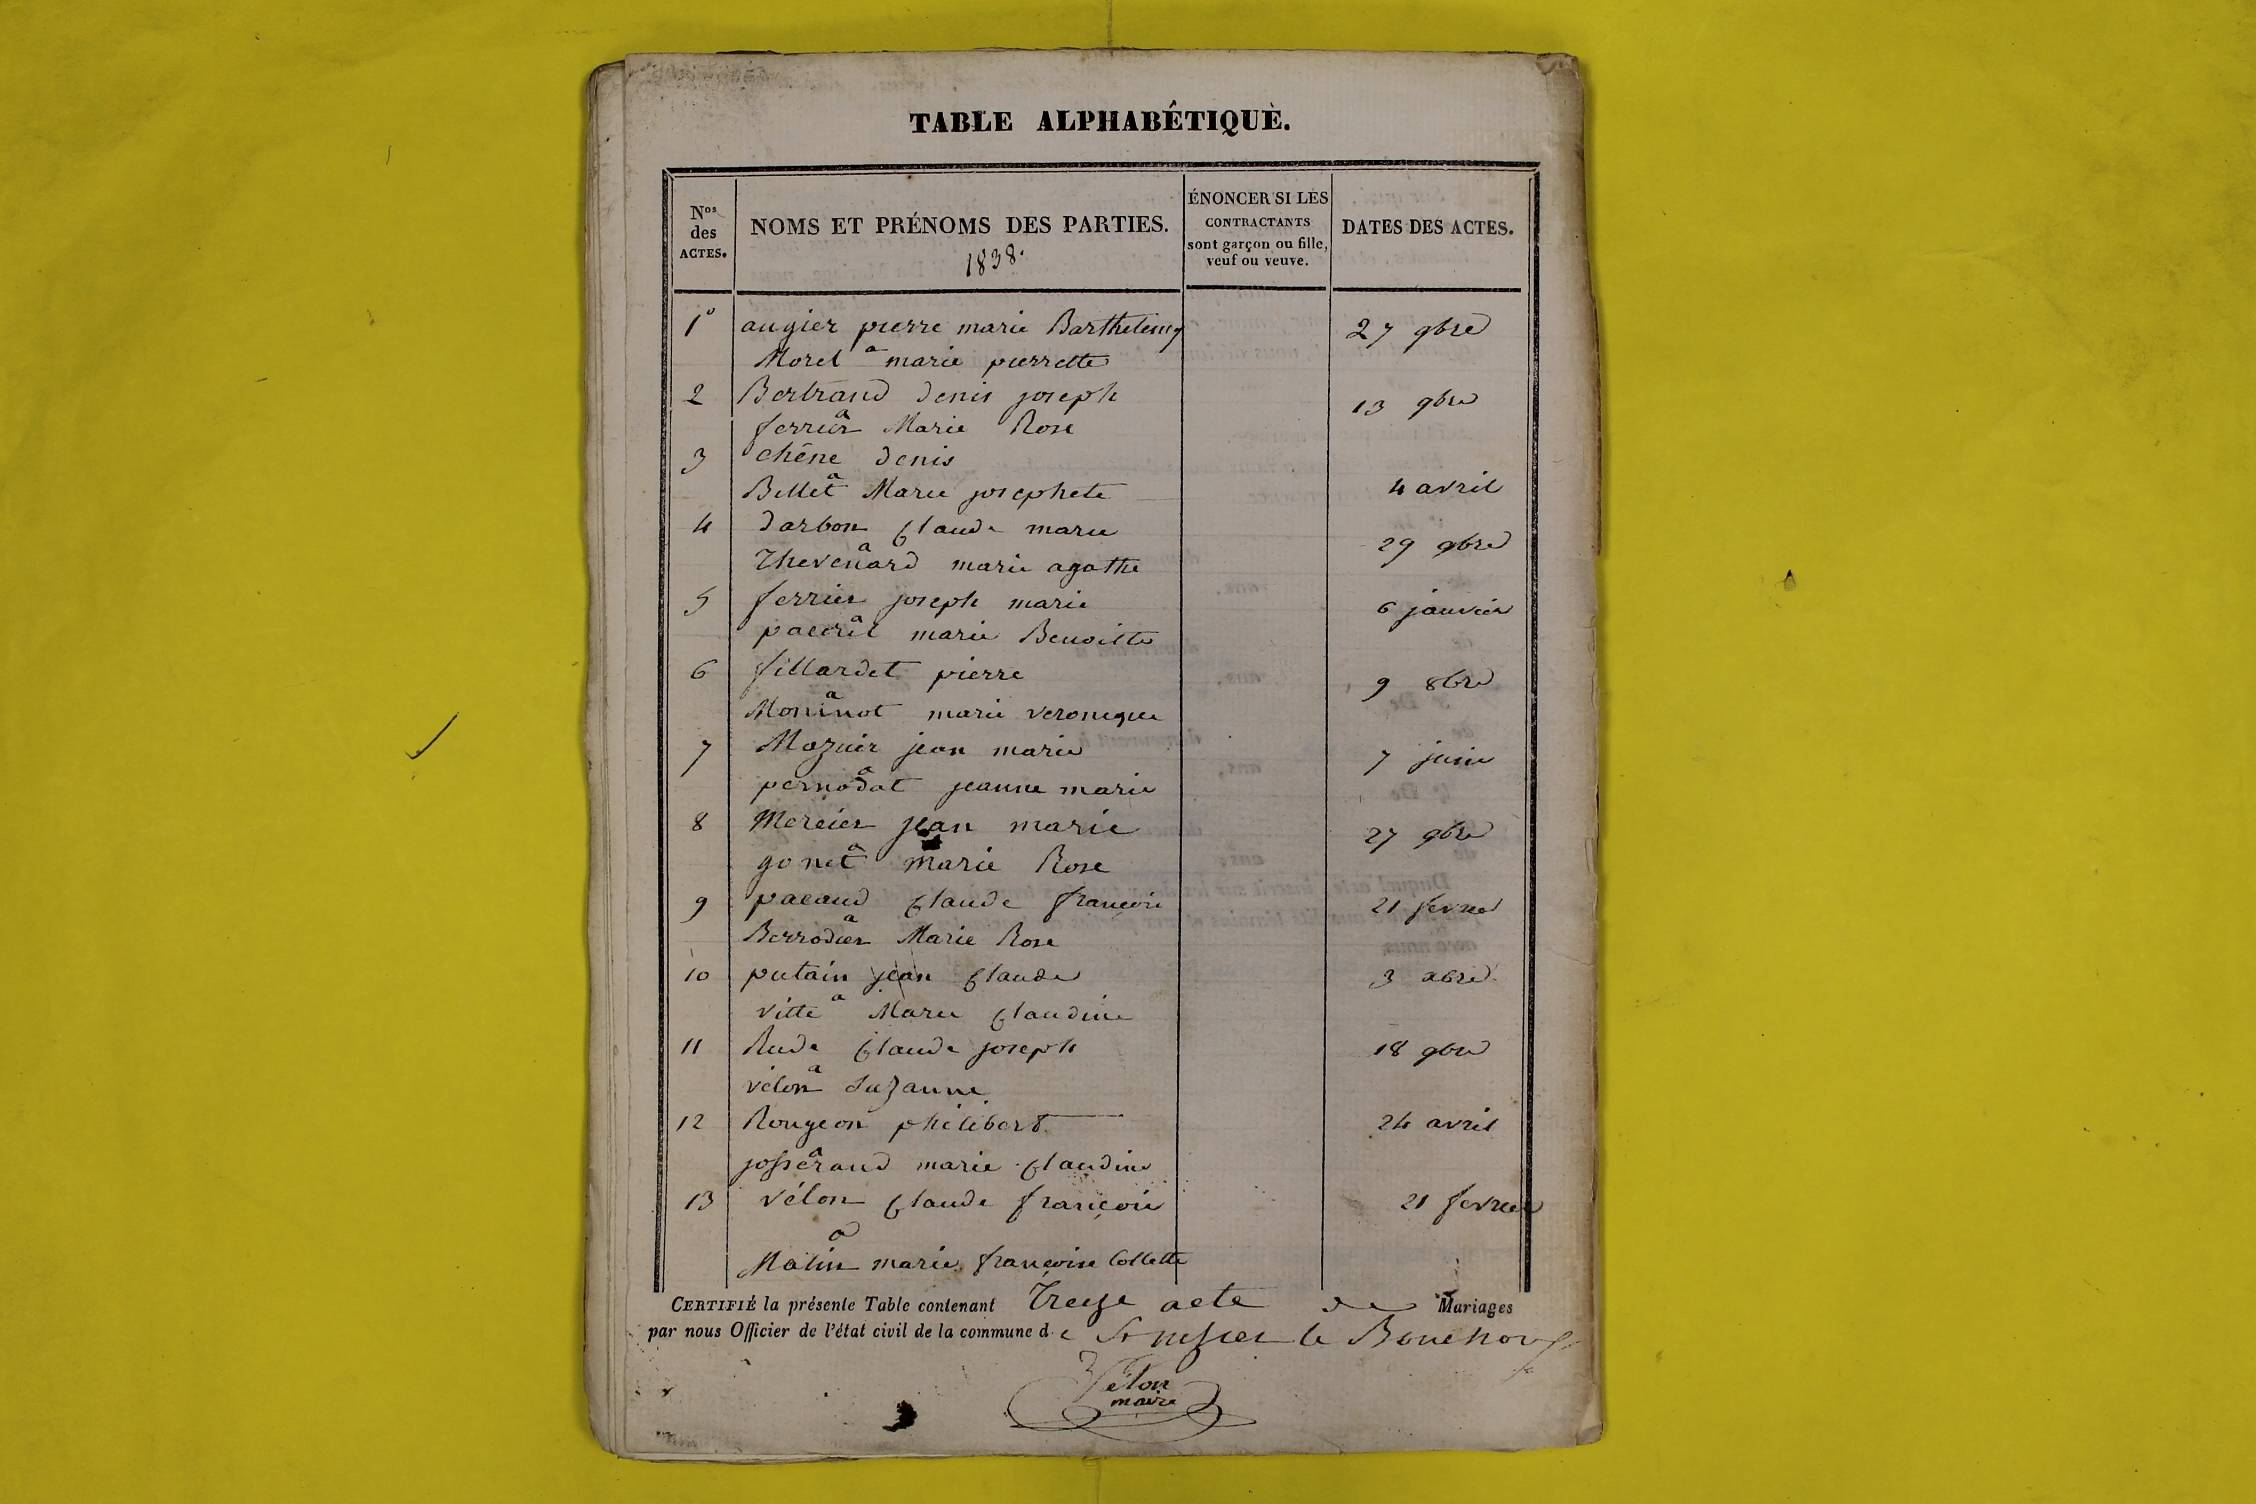 TABLE ALPHABÉTIQUE.
Nos des ACTES.
NOMS ET PRÉNOMS DES PARTIES.
1838.
ÉNONCER SI LES CONTRACTANTS sont garçon ou fille, veuf ou veuve.
DATES DES ACTES.
1° augier pierre marie Barthelemy 27 9bre
a
Morel marie pierrette
2 Bertrand denis joseph 13 9bre
a
ferrier Marie Rose
3 chêne denis
a
Billet Marie josephete 4 avril
4 darbon Claude marie
a
Thevenard marie agathe 29 9bre
5 ferrier joseph marie 6 janvier
a
marie Benoitte
6 fillardet pierre 9 8bre
a
Moninot marie veronique
7 Mazuir jean marie 7 juin
a
pernodat jeanne marie
8 Mercier jean marie 27 9bre
a
gonet marie Rose
9 pacaud Claude françois 21 fevrier
a
Berrodier Marie Rose
10 putain jean Claude 3
a
vitte Marie Claudine
11 Rude Claude joseph 18 9bre
a
vélon Suzanne
12 Rougeon philibert 24 avril
a
josserand marie Claudine
13 vélon Claude françois 21 fevrier
a
Matin marie françoise Collette
CERTIFIÉ la présente Table contenant Treize acte de Mariages
par nous Officier de l'état civil de la commune de St le
Vélon
maire